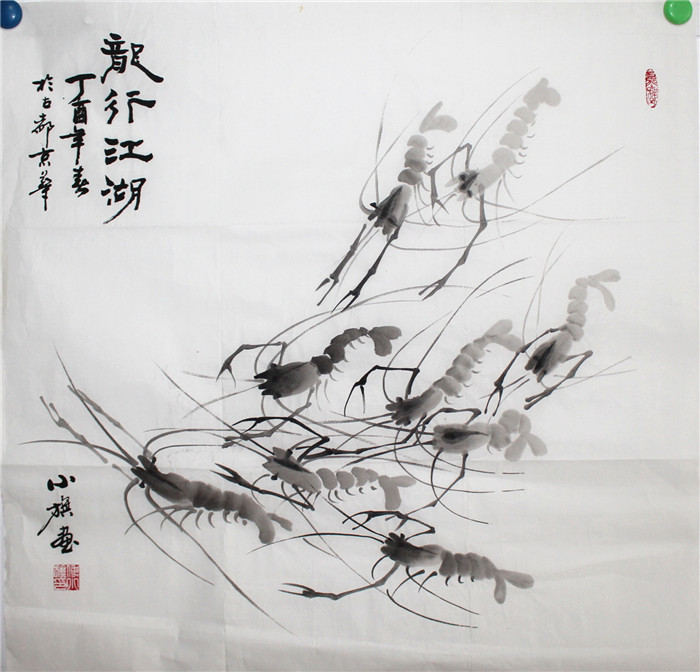 龍行江湖
丁酉年春
於古都京華
小旗画